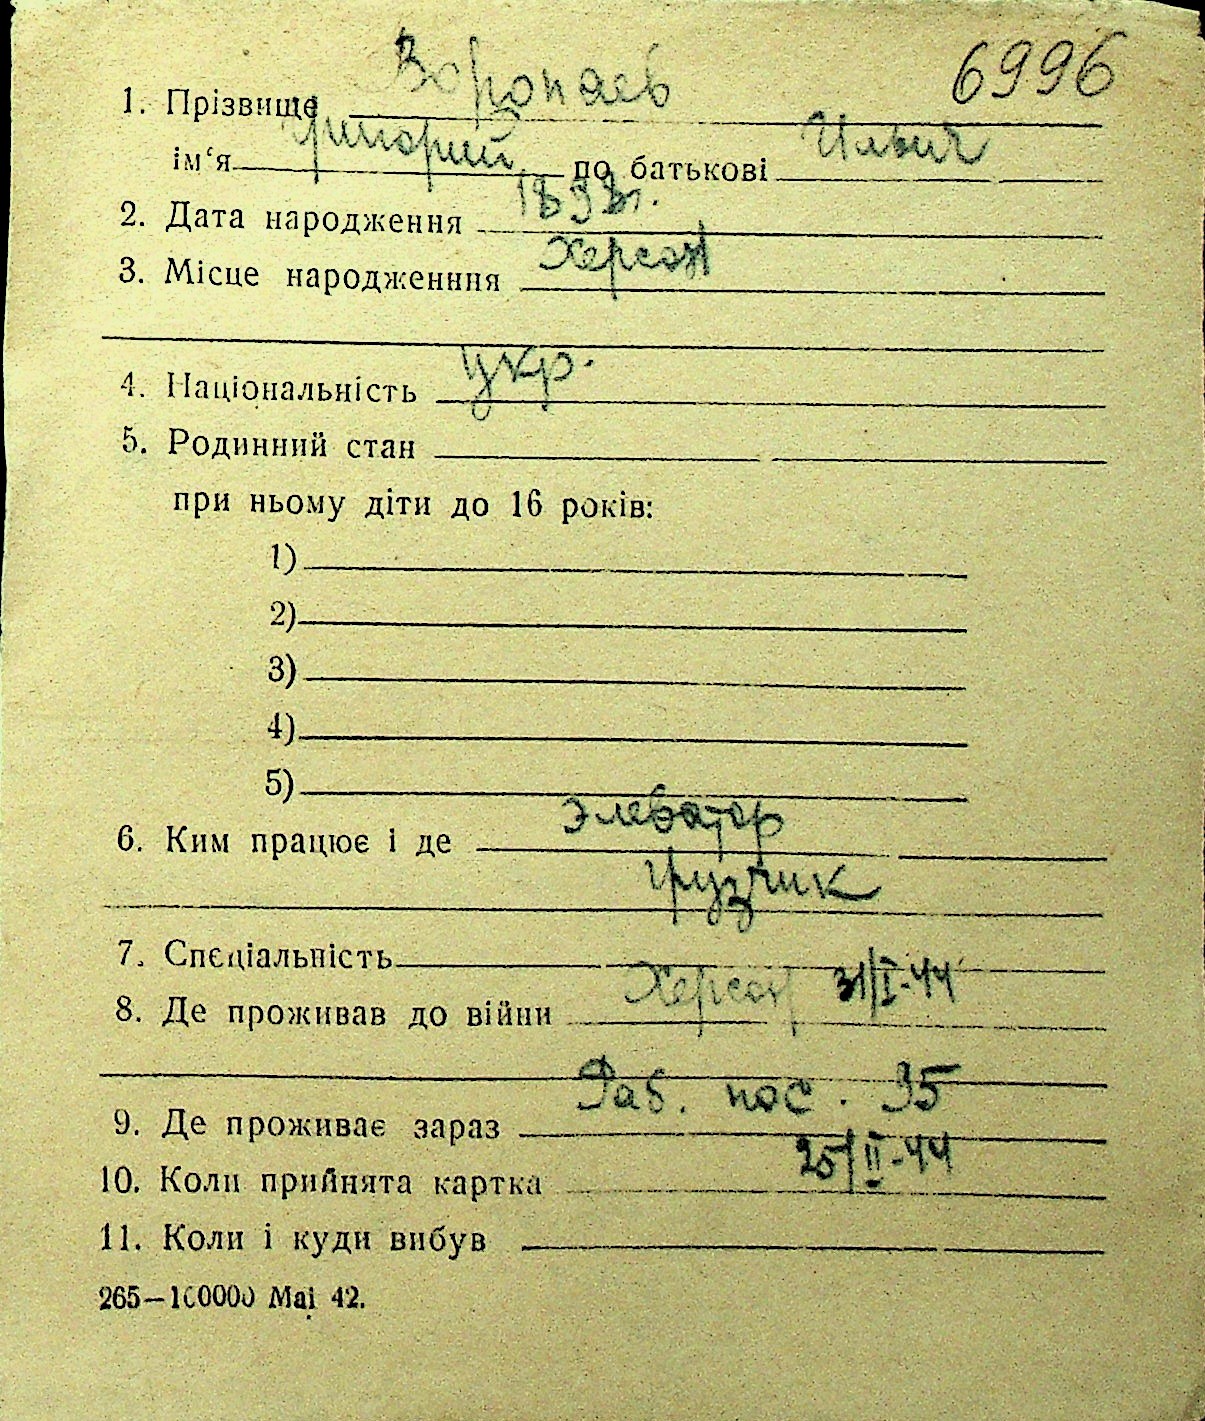 6996
1. Прізвище Воропаев
ім‘я Григорий по батькові Ильич
2. Дата народження 1893г.
3. Місце народженння Херсон
4. Національність укр.
5. Родинний стан
при ньому діти до 16 років:
1)
2)
3)
4)
5)
6. Ким працює і де элеватор
грузчик
7. Спеціальність
8. Де проживав до війни Херсон 31/I-44
9. Де проживає зараз Раб. пос. 35
10. Коли прийнята картка 25/II-44
11. Коли і куди вибув
265—100000 Mai 42.